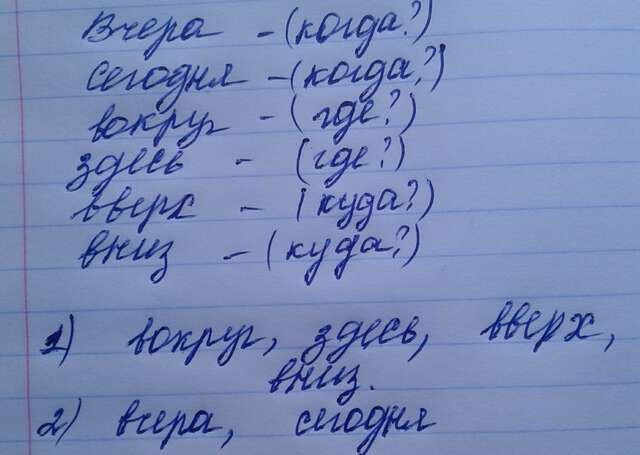 Вчера - (когда?)
сегодня - (когда?)
вокруг - (где?)
здесь - (где?)
вверх - (куда?)
вниз - (куда?)
1) вокруг, здесь, вверх,
вниз.
2) вчера, сегодня